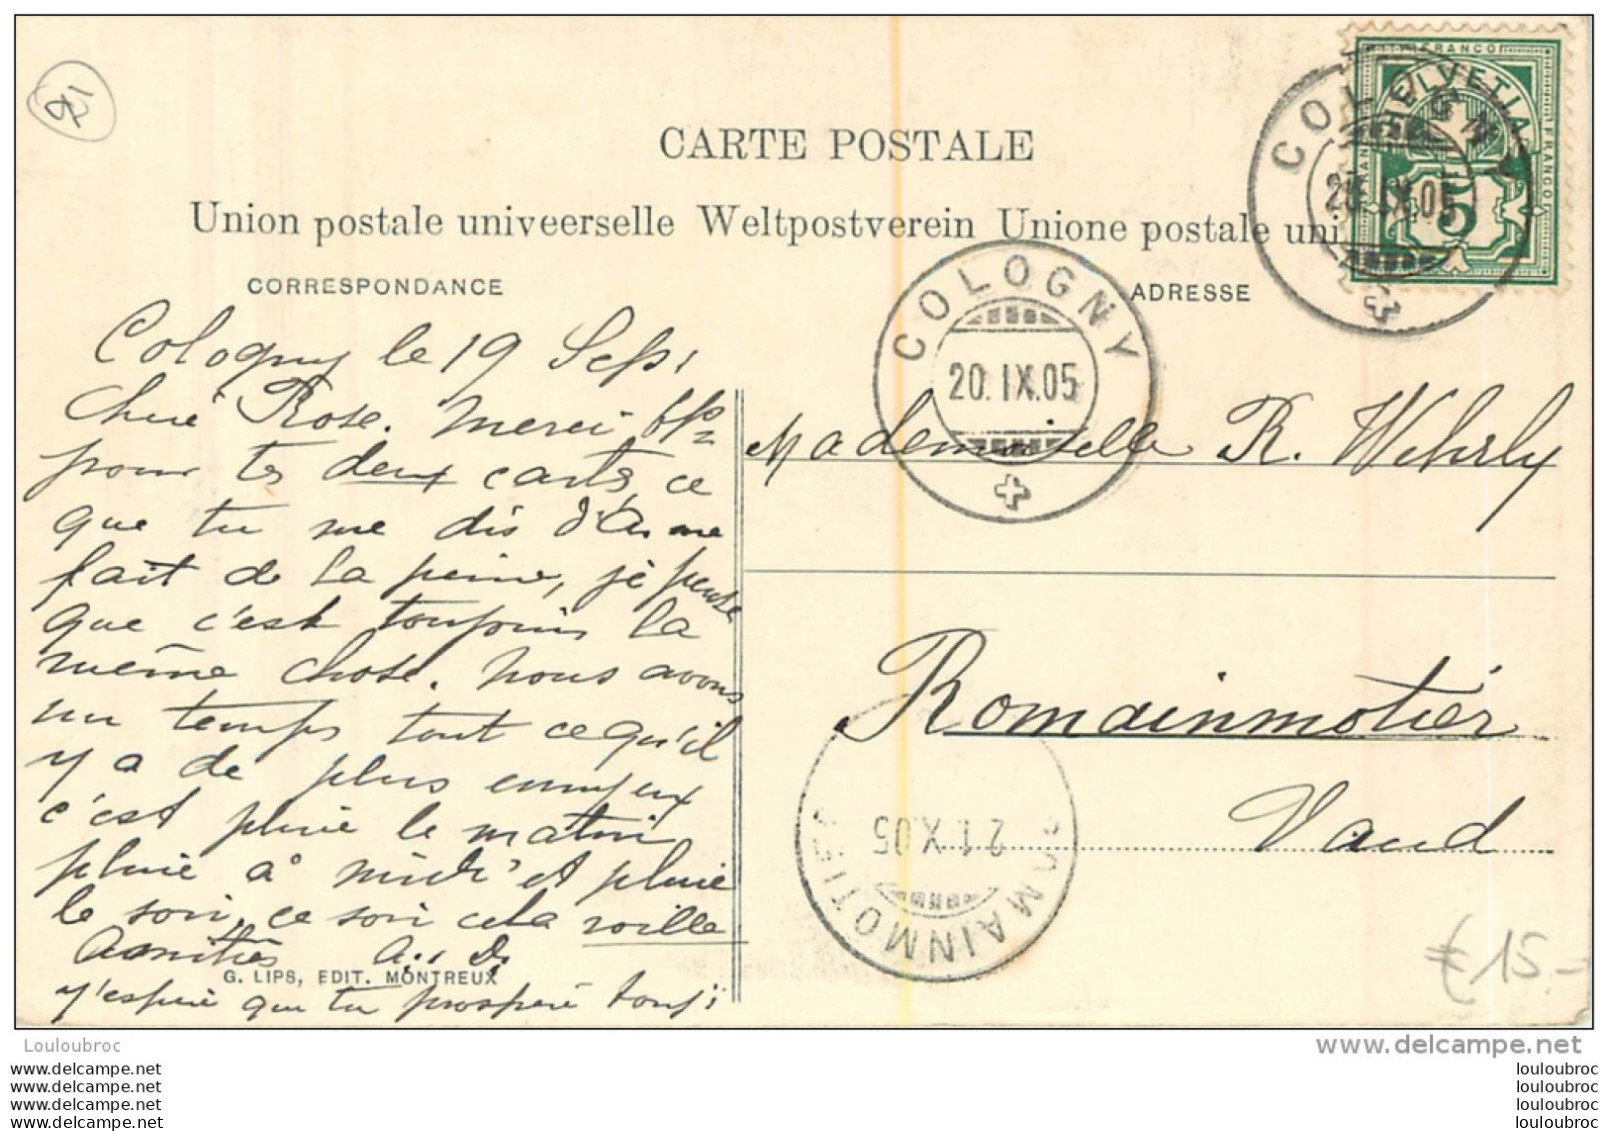 CARTE POSTALE
Union postale univeerselle Weltpostverein Unione postale uni
FRANCO
HELVETIA
FRANCO
5
COLOGNY
20. IX. 05
COLOGNY
20. IX. 05
CORRESPONDANCE
ADRESSE
Cologny le 19 Sept
Chère Rose. Merci
pour tes deux cartes, ce
que tu me dis me
fait de la peine, je pense
que c'est toujours la
même chose. Nous avons
un temps tout ce qu'il
y a de plus ennuyeux
c'est pluie le matin
pluie à midi et pluie
le soir, ce soir cela roille
Amitiés
G. LIPS, EDIT. MONTREUX
j'espère que tu prospère touj:
Mademoiselle R. Wehrly
Romainmotier
Vaud
ROMAINMOTIER
21. X. 05
€ 15.-
Louloubroc
delcampe.net
www.delcampe.net
www.delcampe.net
www.delcampe.net
www.delcampe.net
louloubroc
louloubroc
louloubroc
louloubroc